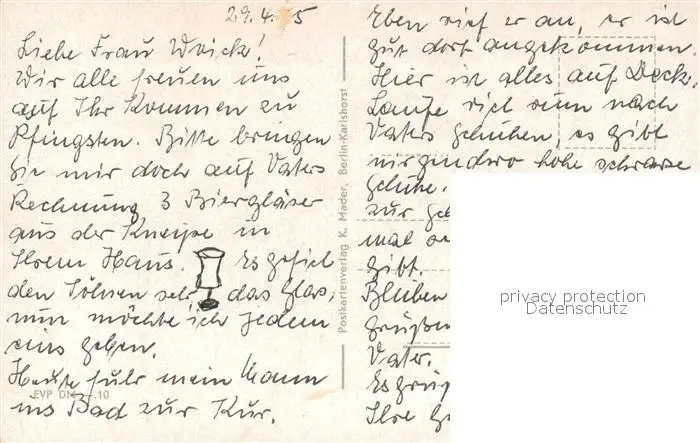 29.4. 5
Liebe Frau Weick!
Wir alle freuen uns
auf Ihr Kommen zu
Pfingsten. Bitte bringen
Sie mir doch auf Vaters
Rechnung 3 Biergläser
aus der Kneipe in
Ihrem Haus. Es gefiel
den Söhnen sehr das Glas,
nun möchte ich jedem
eins geben.
Heute fuhr mein Mann
ins Bad zur Kur.
EVP DM 10
Postkartenverlag K. Mader, Berlin-Karlshorst
Eben rief er an, er ist
gut dort angekommen.
Hier ist alles auf Deck.
Laufe viel nun nach
Vaters Schuhen, es gibt
nirgendwo hohe schwarze
Schuhe.
zur
mal
gibt.
Blüben
grüßen
Vater.
Es grüß
Ihre
privacy protection
Datenschutz